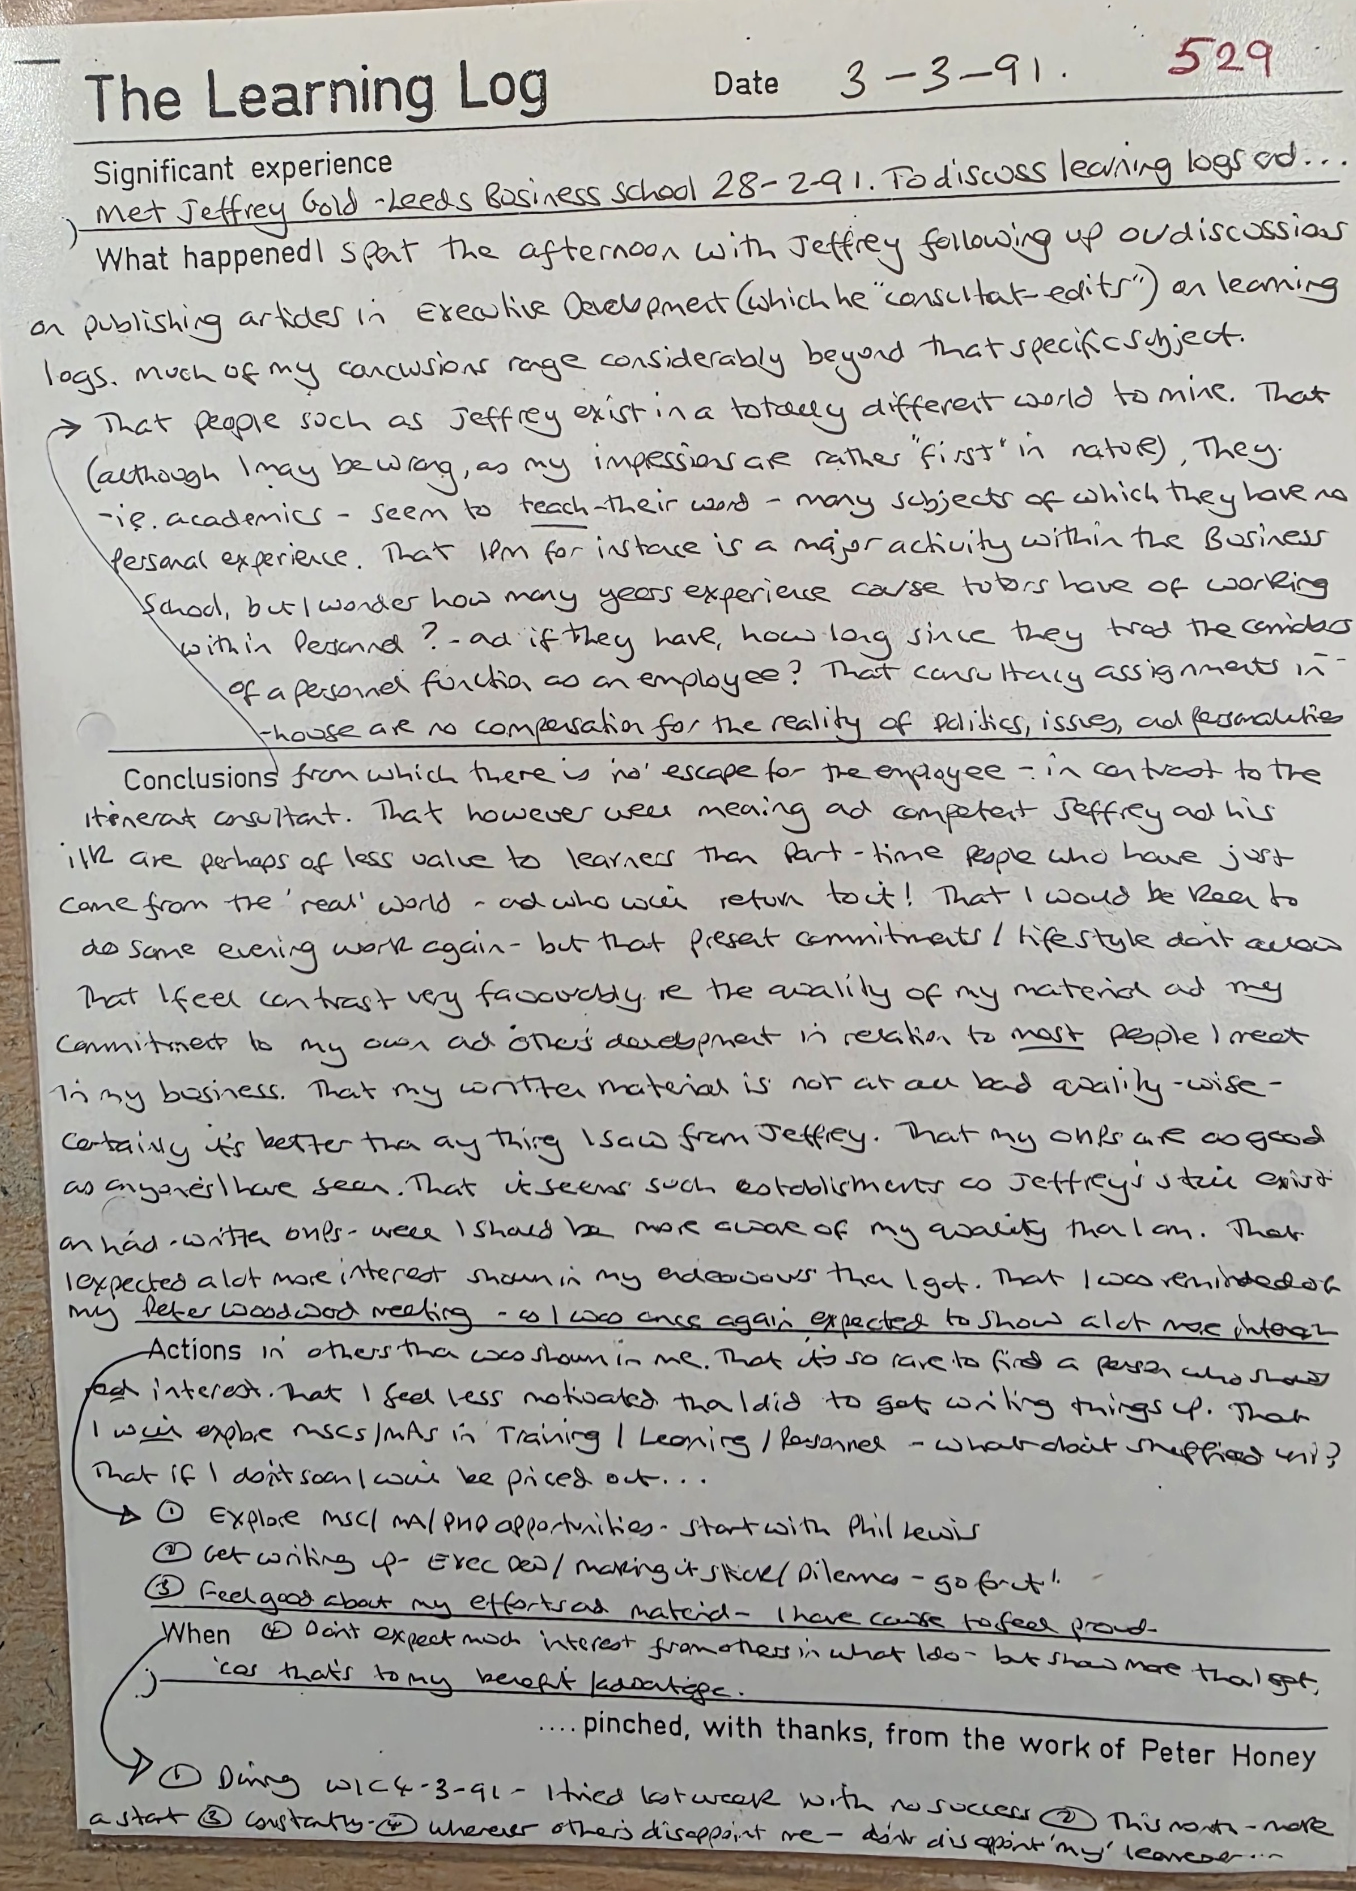 The Learning Log Date 3-3-91. 529
Significant experience
Met Jeffrey Gold - Leeds Business School 28-2-91. To discuss learning logs ad...
What happened I spent the afternoon with Jeffrey following up our discussions
on publishing articles in Executive Development (which he "consultat-edits") on learning
logs. Much of my conclusions range considerably beyond that specific subject.
→ That people such as Jeffrey exist in a totally different world to mine. That
(although I may be wrong, as my impressions are rather "first" in nature), They
- ie. academics - seem to teach - their word - many subjects of which they have no
personal experience. That IPM for instance is a major activity within the Business
School, but I wonder how many years experience course tutors have of working
within Personnel? - ad if they have, how long since they trod the corridors
of a personnel function as an employee? That consultancy assignments in-
-house are no compensation for the reality of politics, issues, ad personalities
Conclusions from which there is 'no' escape for the employee - in contrast to the
itinerant consultant. That however well meaning ad competent Jeffrey ad his
ilk are perhaps of less value to learners than part-time people who have just
come from the 'real' world - ad who will return to it! That I would be keen to
do some evening work again - but that present commitments / lifestyle don't allow
That I feel contrast very favourably re the quality of my material ad my
commitment to my own ad others development in relation to most people I meet
in my business. That my written material is not at all bad quality-wise -
certainly it's better than any thing I saw from Jeffrey. That my OHPs are as good
as anyone's I have seen. That it seems such establishments as Jeffrey's still exist
on hand-written OHPs - well I should be more aware of my quality than I am. That
I expected a lot more interest shown in my endeavours than I got. That I was reminded of
my Peter Woodwood meeting - as I was once again expected to show a lot more interest
Actions in others than was shown in me. That it's so rare to find a person who shows
real interest. That I feel less motivated than I did to get writing things up. That
I will explore MSCs/MAs in Training / Learning / Personnel - what about Sheffield uni?
That if I don't soon I will be priced out...
① Explore MSC/ MA/ PHD opportunities - start with Phil Lewis
② Get writing up - Exec Dev / making it stick / Dilemma - go for it!!
③ Feel good about my efforts ad material - I have cause to feel proud -
When ④ Don't expect much interest from others in what I do - but show more than I get,
'cos that's to my benefit / advantage.
....pinched, with thanks, from the work of Peter Honey
① During W/C 4-3-91 - I tried last week with no success ② This month - make
a start ③ Constantly - ④ Wherever others disappoint me - don't disappoint 'my' learners...